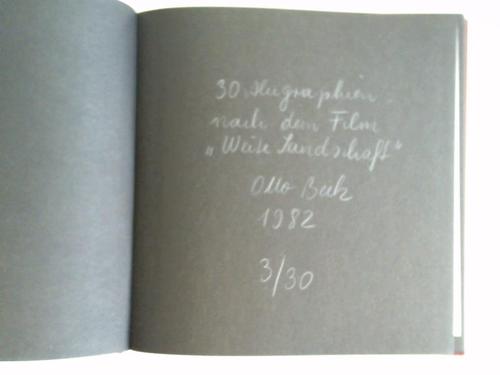 30 Alugraphien
nach dem Film
„Weite Landschaft“
Otto Beck
1982
3/30